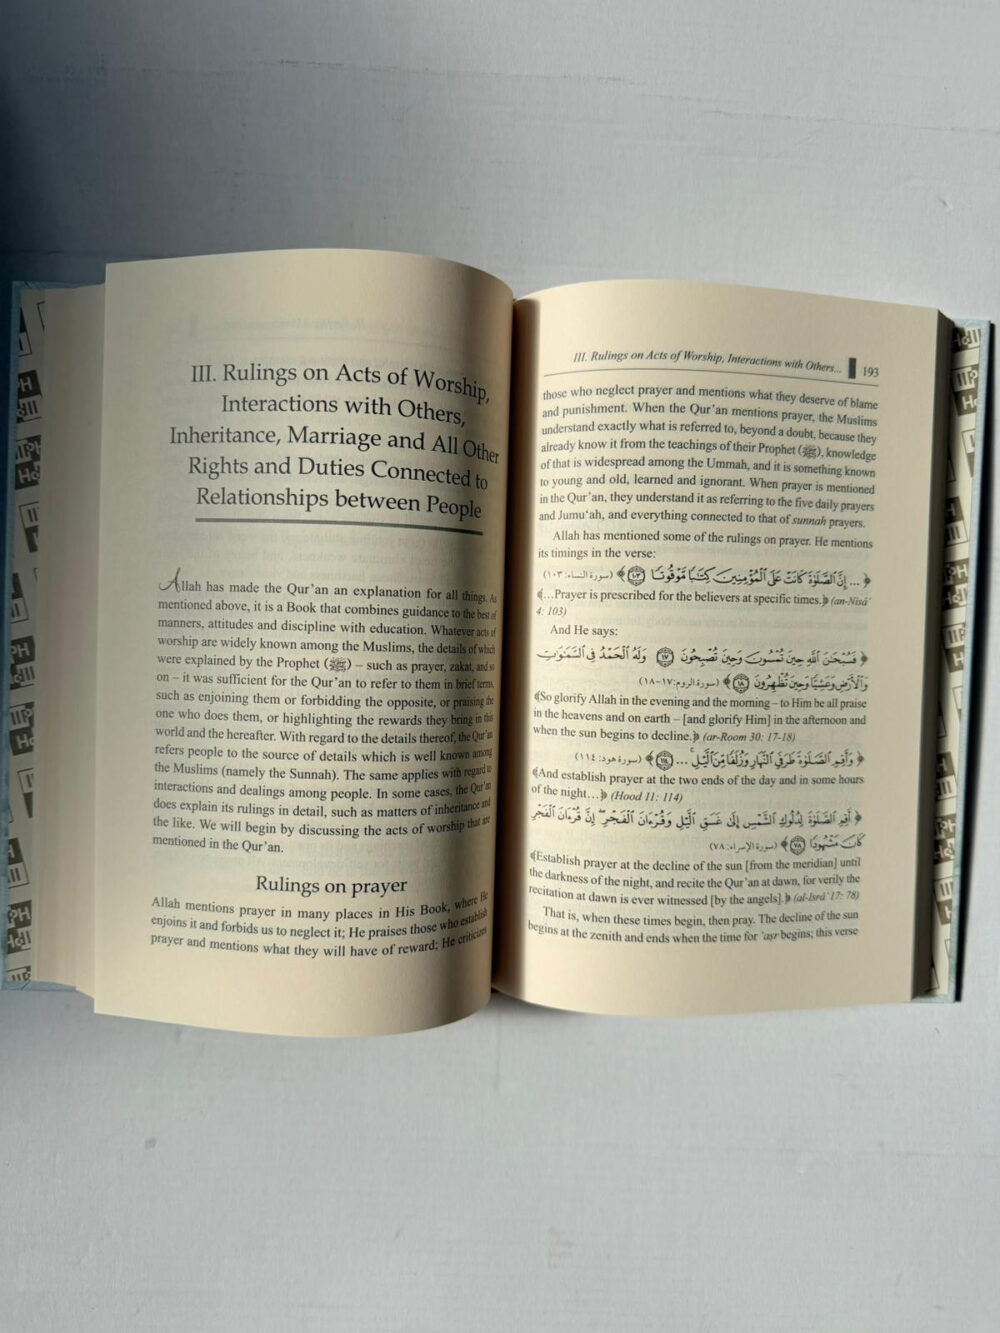 III. Rulings on Acts of Worship,
Interactions with Others,
Inheritance, Marriage and All Other
Rights and Duties Connected to
Relationships between People
Allah has made the Qur'an an explanation for all things. As
mentioned above, it is a Book that combines guidance to the best of
manners, attitudes and discipline with education. Whatever acts of
worship are widely known among the Muslims, the details of which
were explained by the Prophet (ﷺ) – such as prayer, zakat, and so
on – it was sufficient for the Qur'an to refer to them in brief terms,
such as enjoining them or forbidding the opposite, or praising the
one who does them, or highlighting the rewards they bring in this
world and the hereafter. With regard to the details thereof, the Qur'an
refers people to the source of details which is well known among
the Muslims (namely the Sunnah). The same applies with regard to
interactions and dealings among people. In some cases, the Qur'an
does explain its rulings in detail, such as matters of inheritance and
the like. We will begin by discussing the acts of worship that are
mentioned in the Qur'an.
Rulings on prayer
Allah mentions prayer in many places in His Book, where He
enjoins it and forbids us to neglect it; He praises those who establish
prayer and mentions what they will have of reward; He criticizes
III. Rulings on Acts of Worship, Interactions with Others... 193
those who neglect prayer and mentions what they deserve of blame
and punishment. When the Qur'an mentions prayer, the Muslims
understand exactly what is referred to, beyond a doubt, because they
already know it from the teachings of their Prophet (ﷺ), knowledge
of that is widespread among the Ummah, and it is something known
to young and old, learned and ignorant. When prayer is mentioned
in the Qur'an, they understand it as referring to the five daily prayers
and Jumu'ah, and everything connected to that of sunnah prayers.
Allah has mentioned some of the rulings on prayer. He mentions
its timings in the verse:
﴿ ... إِنَّ ٱلصَّلَوٰةَ كَانَتْ عَلَى ٱلْمُؤْمِنِينَ كِتَـٰبًا مَّوْقُوتًا ١٠٣﴾ (سورة النساء: ١٠٣)
﴾...Prayer is prescribed for the believers at specific times.﴿ (an-Nisâ'
4: 103)
And He says:
﴿ فَسُبْحَـٰنَ ٱللَّهِ حِينَ تُمْسُونَ وَحِينَ تُصْبِحُونَ ١٧ وَلَهُ ٱلْحَمْدُ فِى ٱلسَّمَـٰوَٰتِ
وَٱلْأَرْضِ وَعَشِيًّا وَحِينَ تُظْهِرُونَ ١٨﴾ (سورة الروم: ١٧-١٨)
﴾So glorify Allah in the evening and the morning – to Him be all praise
in the heavens and on earth – [and glorify Him] in the afternoon and
when the sun begins to decline.﴿ (ar-Room 30: 17-18)
﴿ وَأَقِمِ ٱلصَّلَوٰةَ طَرَفَىِ ٱلنَّهَارِ وَزُلَفًا مِّنَ ٱلَّيْلِ ... ١١٤﴾ (سورة هود: ١١٤)
﴾And establish prayer at the two ends of the day and in some hours
of the night…﴿ (Hood 11: 114)
﴿ أَقِمِ ٱلصَّلَوٰةَ لِدُلُوكِ ٱلشَّمْسِ إِلَىٰ غَسَقِ ٱلَّيْلِ وَقُرْءَانَ ٱلْفَجْرِ إِنَّ قُرْءَانَ ٱلْفَجْرِ
كَانَ مَشْهُودًا ٧٨﴾ (سورة الإسراء: ٧٨)
﴾Establish prayer at the decline of the sun [from the meridian] until
the darkness of the night, and recite the Qur'an at dawn, for verily the
recitation at dawn is ever witnessed [by the angels].﴿ (al-Isrâ' 17: 78)
That is, when these times begin, then pray. The decline of the sun
begins at the zenith and ends when the time for 'aṣr begins; this verse